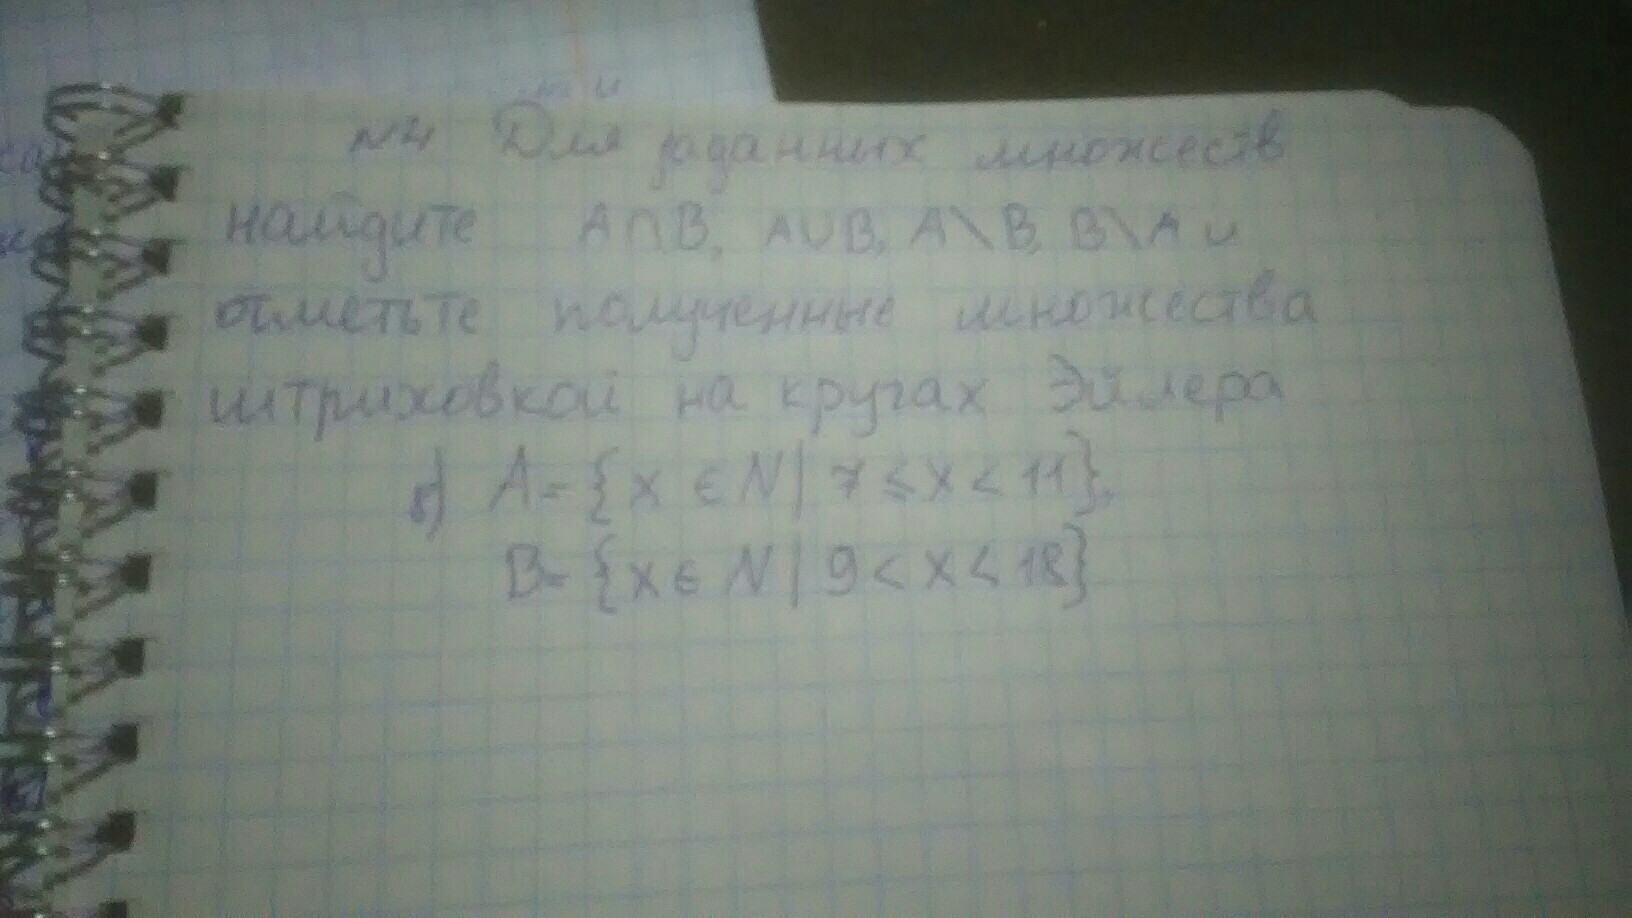 №4 Для заданных множеств
найдите A∩B, A∪B, A\B, B\A и
отметьте полученные множества
штриховкой на кругах Эйлера
A={x ∈ N | 7 ≤ x < 11},
B={x ∈ N | 9 < x < 18}